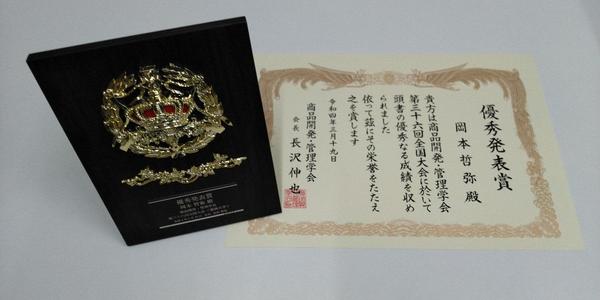 優秀発表賞
岡本哲弥殿
貴方は商品開発・管理学会
第三十六回全国大会に於いて
頭書の優秀なる成績を収め
られました
依って茲にその栄誉をたたえ
之を賞します
令和四年三月十九日
商品開発・管理学会
会長 長沢伸也
優秀発表賞
岡本哲弥殿